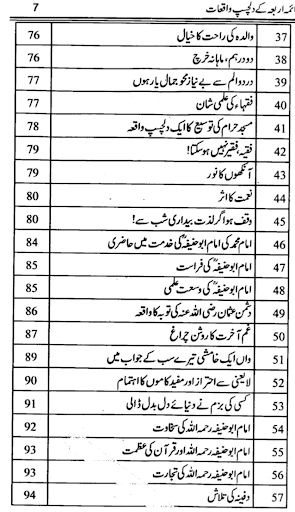 ائمہ اربعہ کے دلچسپ واقعات 7
37 والدہ کی راحت کا خیال 76
38 دو درہم، ماہانہ خرچ 76
39 درد و الم سے بے نیاز محو جمالِ یار ہوں 77
40 فقہاء کی علمی شان 77
41 مسجد حرام کی توسیع کا ایک دلچسپ واقعہ 78
42 فقیہ، فقیر نہیں ہو سکتا! 79
43 آنکھوں کا نور 79
44 نعمت کا اثر 80
45 وقف ہوا گر لذت بیداری شب سے! 80
46 امام محمد کی امام ابو حنیفہؒ کی خدمت میں حاضری 84
47 امام ابو حنیفہؒ کی فراست 85
48 امام ابو حنیفہؒ کی وسعت علمی 85
49 دشمن عثمان رضی اللہ عنہ کی توبہ کا واقعہ 86
50 غم آخرت کا روشن چراغ 87
51 واں ایک خامشی تیرے سب کے جواب میں 89
52 لایعنی سے احتراز اور مفید کاموں کا اہتمام 90
53 کسی کی بزم نے دنیائے دل بدل ڈالی 91
54 امام ابو حنیفہ رحمہ اللہ کی سخاوت 92
55 امام ابو حنیفہ رحمہ اللہ اور قرآن کی عظمت 93
56 امام ابو حنیفہ رحمہ اللہ کی تجارت 93
57 دفینہ کی تلاش 94